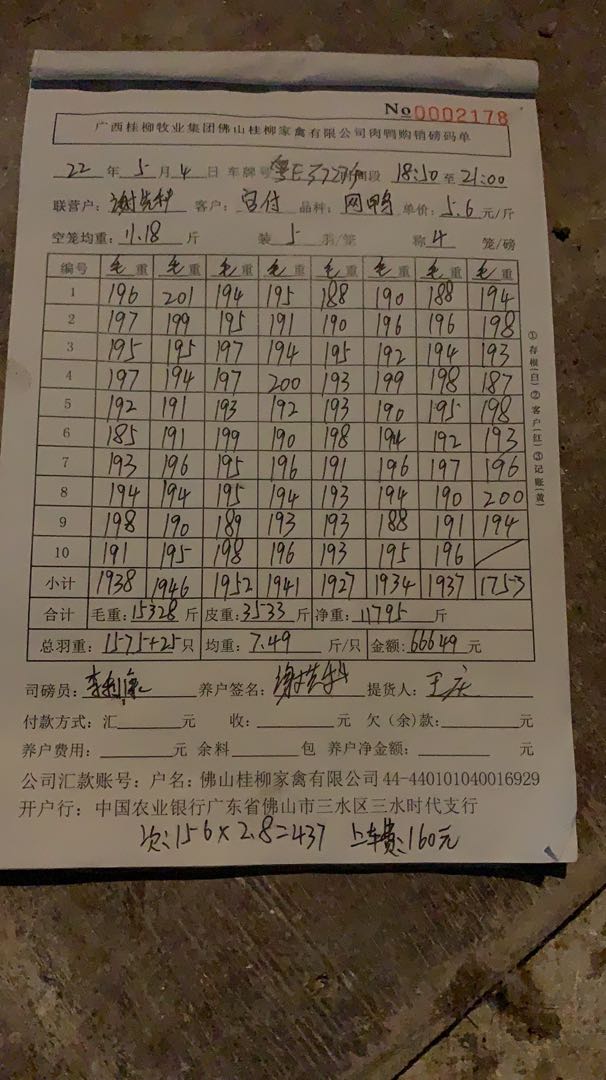 No 0002178
广西桂柳牧业集团佛山桂柳家禽有限公司肉鸭购销磅码单
22 年 5 月 4 日 车牌号 时间段 18:50 至 21:00
联营户: 客户: 宝付 品种: 网鸭 单价: 5.6 元/斤
空笼均重: 11.18 斤 装 5 羽/笼 称 4 笼/磅
编号 毛重 毛重 毛重 毛重 毛重 毛重 毛重 毛重
1 196 201 194 195 188 190 188 194
2 197 199 195 191 190 196 196 198
3 195 195 197 194 195 192 194 193
4 197 194 197 200 193 199 198 187
5 192 191 193 192 193 190 195 198
6 185 191 199 190 198 194 192 193
7 193 196 195 196 191 196 197 196
8 194 194 195 194 193 194 190 200
9 198 190 189 193 193 188 191 194
10 191 195 198 196 193 195 196
小计 1938 1946 1952 1941 1927 1934 1937 1753
合计 毛重: 15328 斤 皮重: 3533 斤 净重: 11795 斤
总羽重: 1575+25 只 均重: 7.49 斤/只 金额: 66649 元
司磅员: 养户签名: 提货人: 王庆
付款方式: 汇 元 收: 元 欠(余)款: 元
养户费用: 元 余料 包 养户净金额: 元
公司汇款账号: 户名: 佛山桂柳家禽有限公司 44-440101040016929
开户行: 中国农业银行广东省佛山市三水区三水时代支行
次: 156×2.8=437 上车费: 160元
①存根(白)②客户(红)③记账(黄)